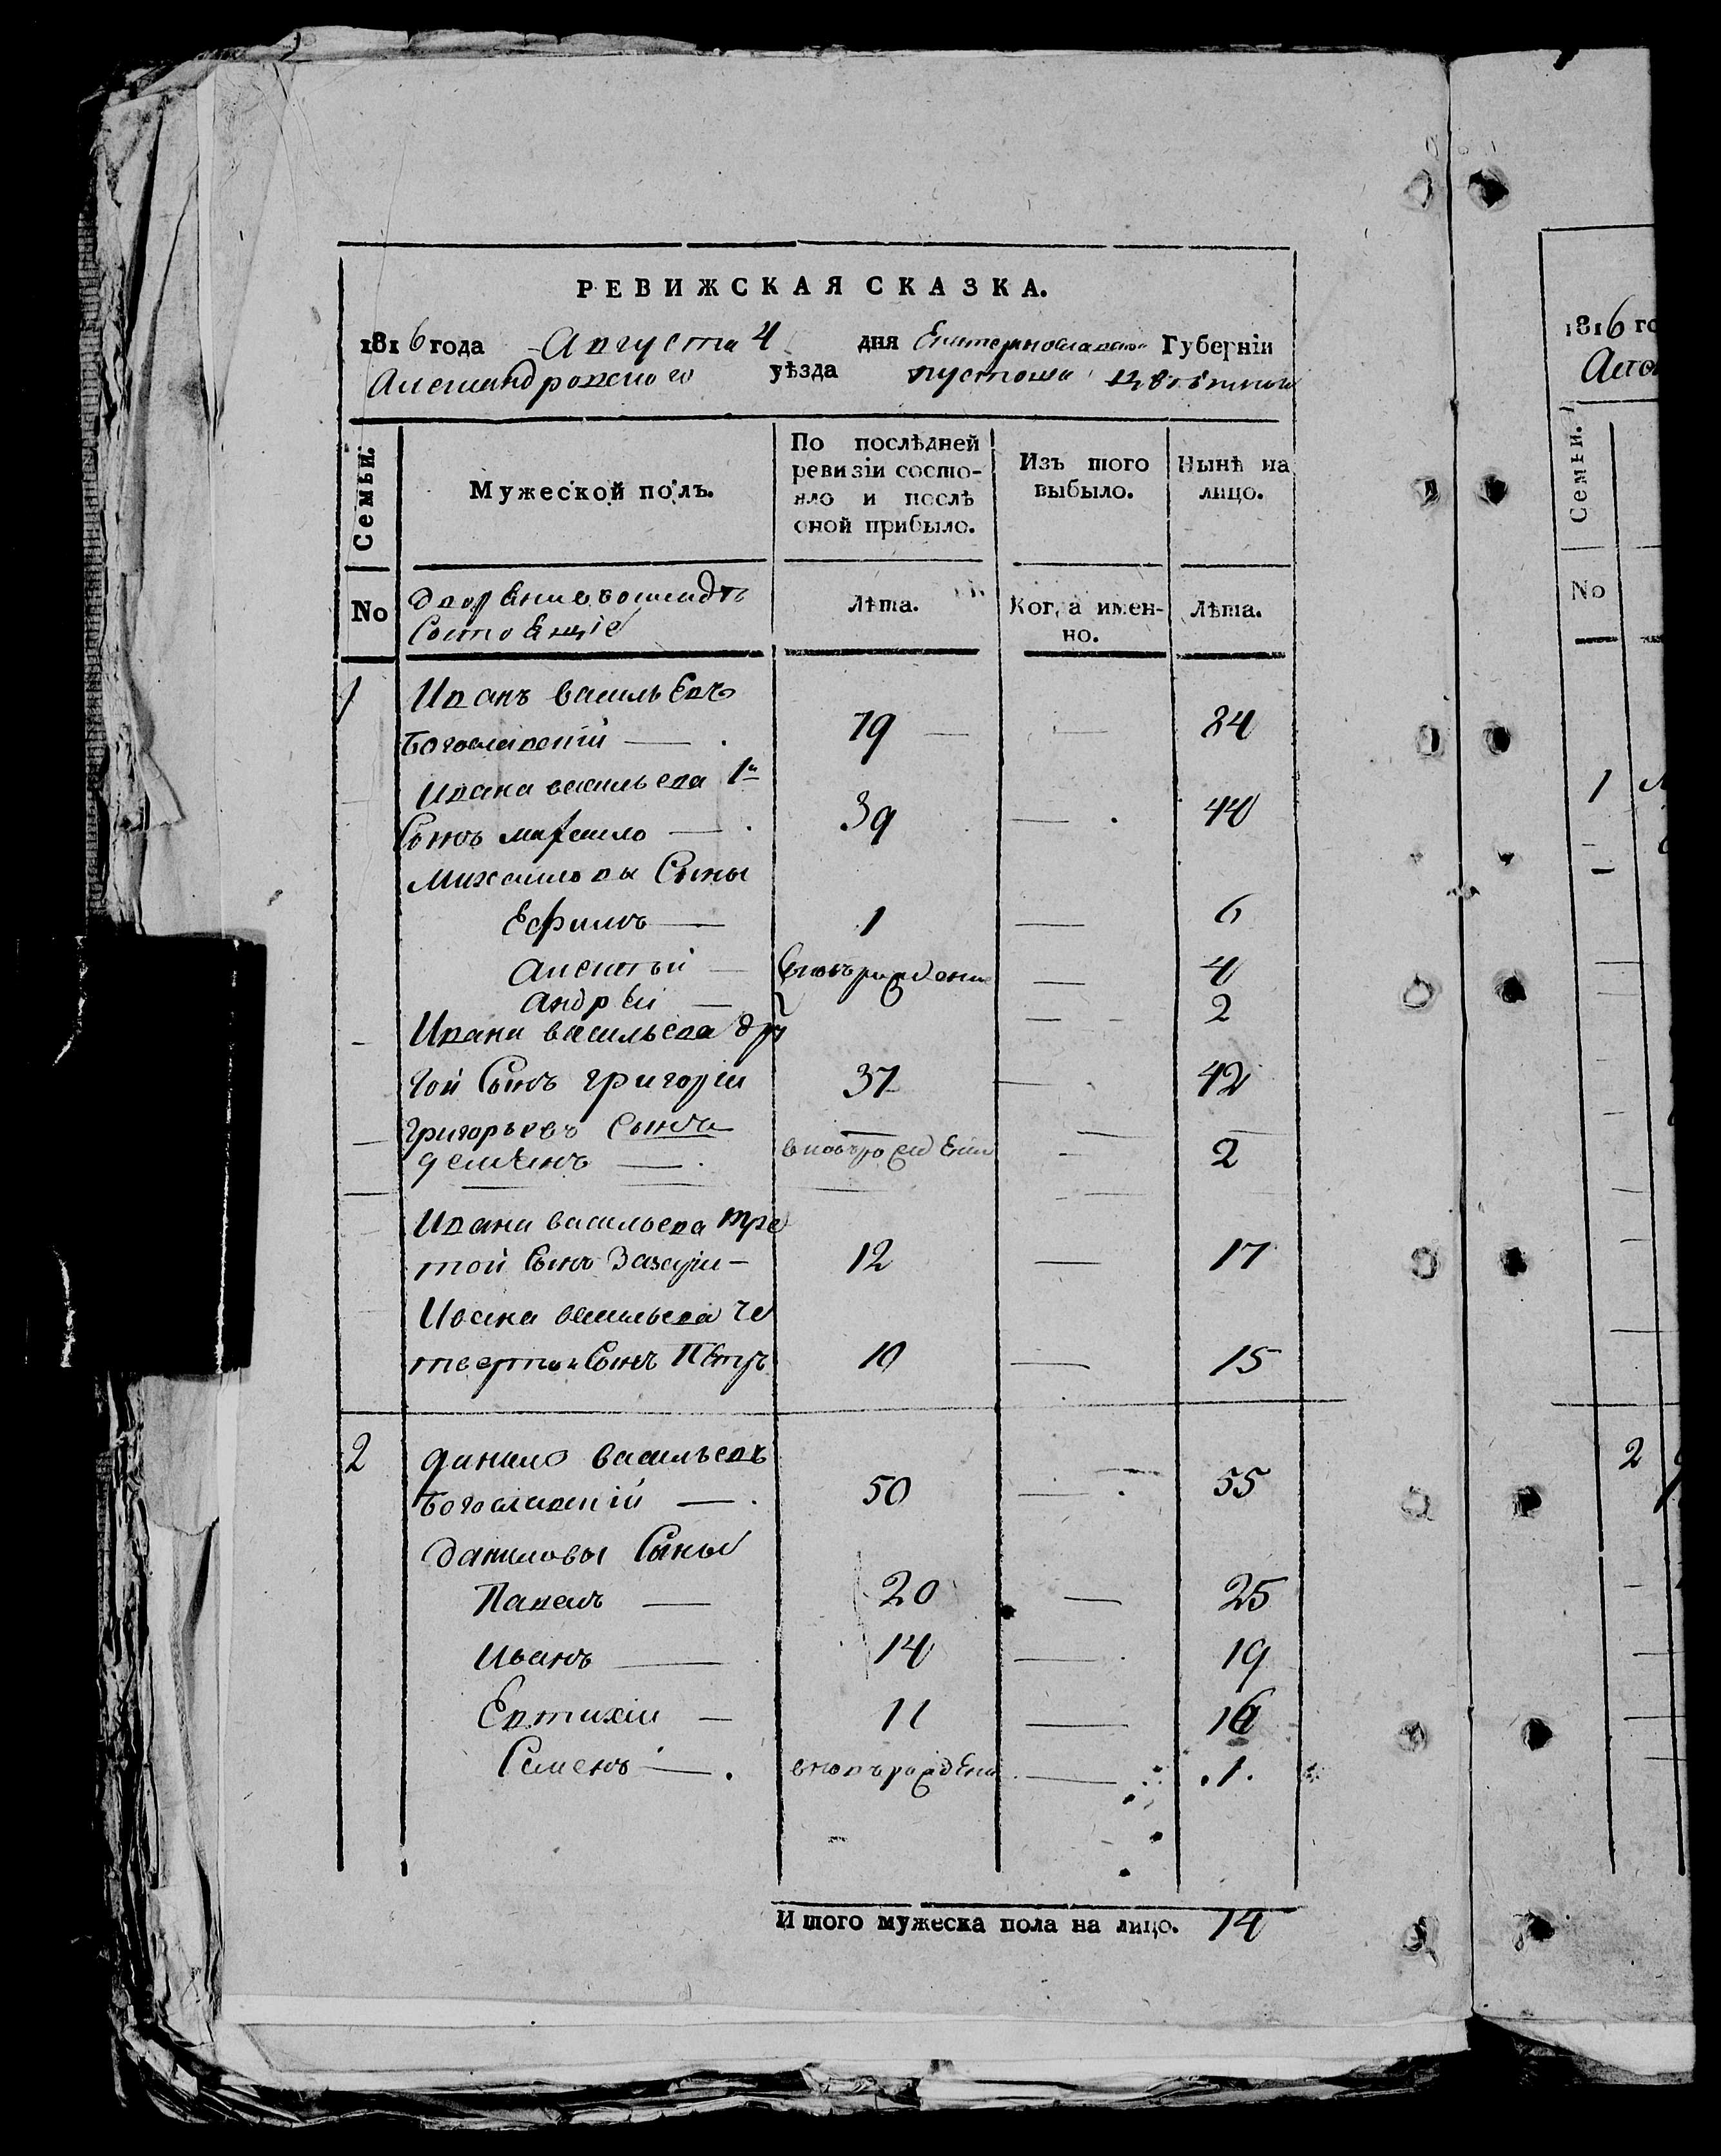 РЕВИЖСКАЯ СКАЗКА.
1816 года Августа 4 дня Екатеринославской Губерніи
Александровского уѣзда пустоша
Семьи.
Мужеской полъ.
По послѣдней ревизіи состо-
яло и послѣ
оной прибыло.
Изъ того
выбыло.
Нынѣ на
лицо.
No
Состоящіе
Лѣта.
Когда имен-
но.
Лѣта.
1 Иванъ васильевъ
Богославскій — 79 — 84
Ивана васильева 1й
Сынъ михаило — 39 — 44
Михаиловы Сыны
Ефимъ — 1 — 6
Алексѣй — вновьрожденн — 4
Андрѣй — — 2
Ивана васильева дру
гой Сынъ григории 37 — 42
Григорьевъ Сынъ
демианъ — вновьрожденн — 2
Ивана васильева тре
той Сынъ Захари — 12 — 17
Ивана васильева че
твертой Сынъ Петръ 10 — 15
2 данило васильевъ
Богославскій — 50 — 55
даниловы Сыны
Павелъ — 20 — 25
Иванъ — 14 — 19
Евтихии — 11 — 16
Семенъ — вновьрожденн — 1
Итого мужеска пола на лицо. 14
1816 го
Алек
Семьи.
No
1
2